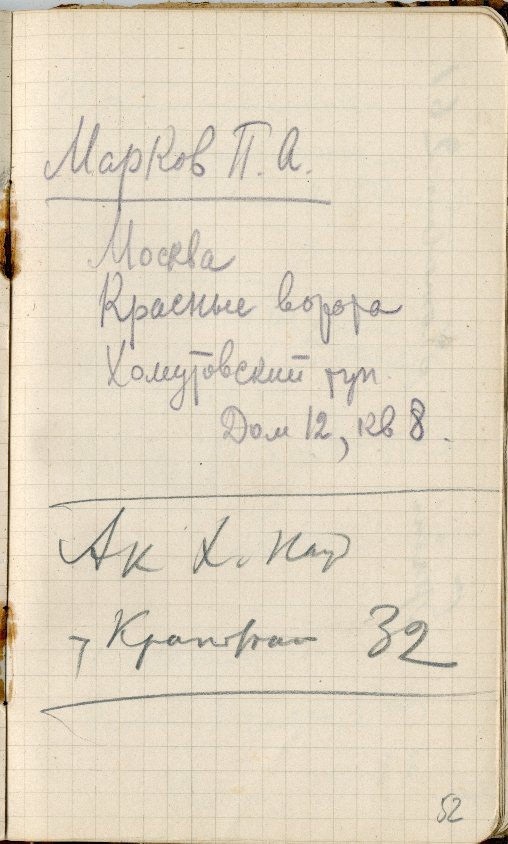 Марков П. А.
Москва
Красные ворота
Хомутовский туп.
Дом 12, кв 8.
Ак Х. Наук
32
52